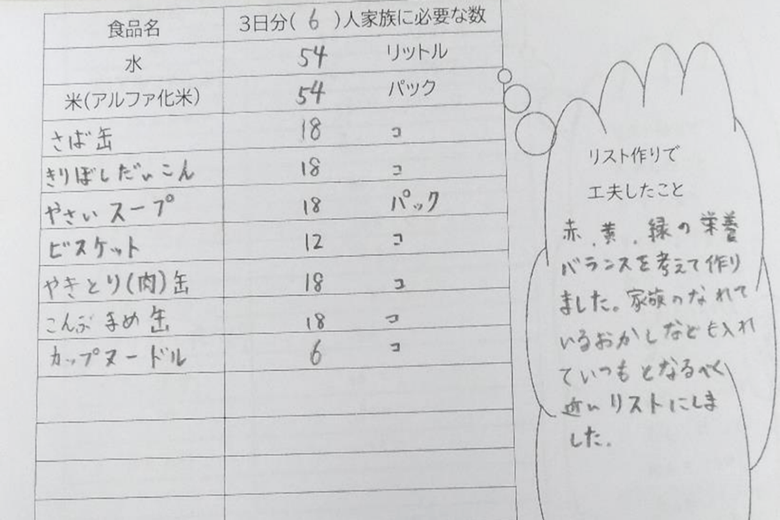 食品名 3日分( 6 )人家族に必要な数
水 54 リットル
米(アルファ化米) 54 パック
さば缶 18 コ
きりぼしだいこん 18 コ
やさいスープ 18 パック
ビスケット 12 コ
やきとり(肉)缶 18 コ
こんぶまめ缶 18 コ
カップヌードル 6 コ
リスト作りで
工夫したこと
赤、黄、緑の栄養
バランスを考えて作り
ました。家族のなれて
いるおかしなども入れ
ていつもとなるべく
近いリストにしま
した。